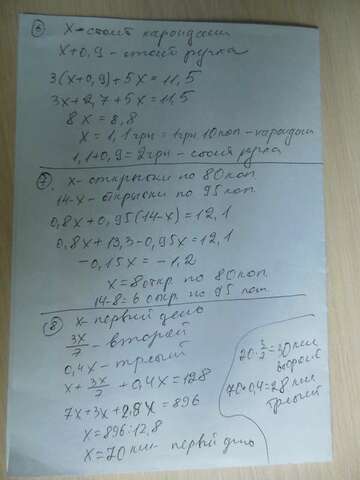 ⑥ x - стоит карандаш
x+0,9 - стоит ручка
3(x+0,9)+5x=11,5
3x+2,7+5x=11,5
8x=8,8
x=1,1грн=1грн 10коп - карандаш
1,1+0,9=2грн - стоит ручка
⑦ x - открытки по 80коп
14-x - открытки по 95коп
0,8x+0,95(14-x)=12,1
0,8x+13,3-0,95x=12,1
-0,15x=-1,2
x=8откр по 80коп
14-8=6 откр. по 95 коп
⑧ x - первий день
3x/7 - второй
0,4x - третий
x+3x/7+0,4x=128
7x+3x+2,8x=896
x=896:12,8
x=70км первий день
70·3/7=30км
второй
70·0,4=28км
третий